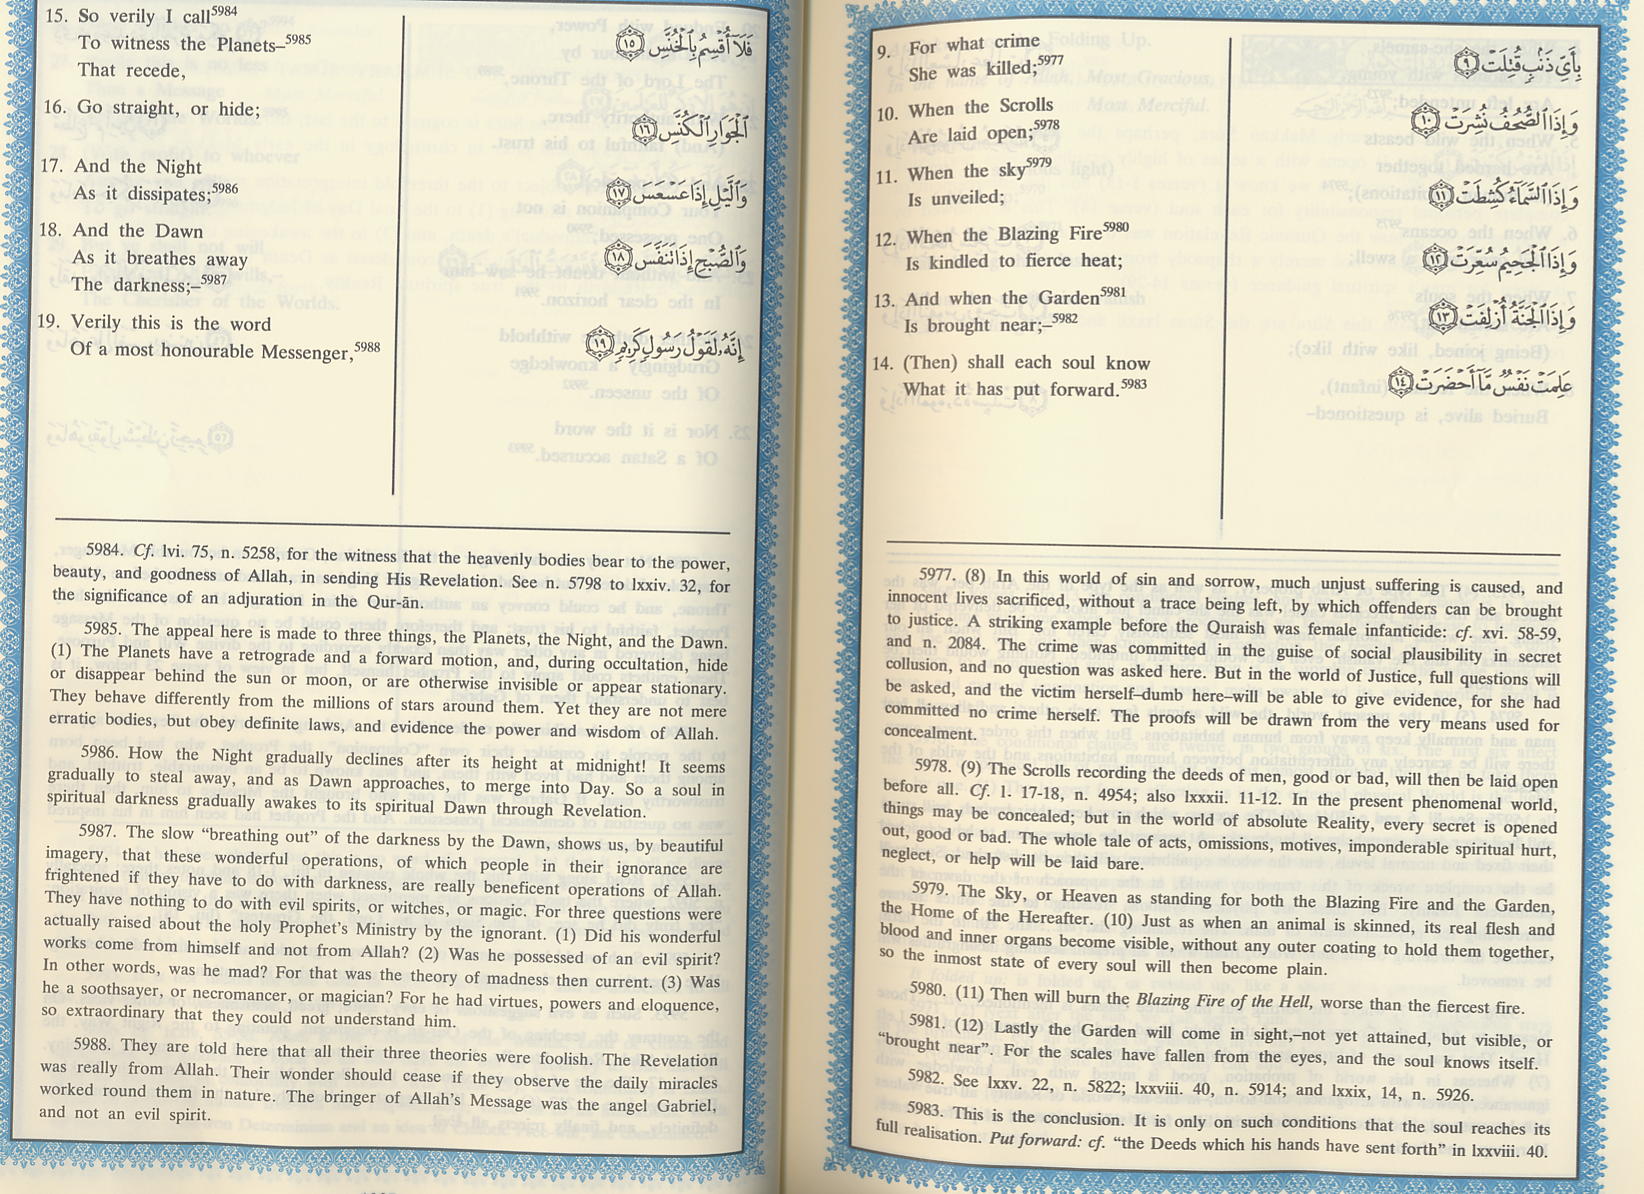 9. For what crime
She was killed;5977
بِأَيِّ ذَنۢبٍ قُتِلَتْ ۝٩
10. When the Scrolls
Are laid open;5978
وَإِذَا ٱلصُّحُفُ نُشِرَتْ ۝١٠
11. When the sky5979
Is unveiled;
وَإِذَا ٱلسَّمَآءُ كُشِطَتْ ۝١١
12. When the Blazing Fire5980
Is kindled to fierce heat;
وَإِذَا ٱلْجَحِيمُ سُعِّرَتْ ۝١٢
13. And when the Garden5981
Is brought near;–5982
وَإِذَا ٱلْجَنَّةُ أُزْلِفَتْ ۝١٣
14. (Then) shall each soul know
What it has put forward.5983
عَلِمَتْ نَفْسٌ مَّآ أَحْضَرَتْ ۝١٤
5977. (8) In this world of sin and sorrow, much unjust suffering is caused, and
innocent lives sacrificed, without a trace being left, by which offenders can be brought
to justice. A striking example before the Quraish was female infanticide: cf. xvi. 58-59,
and n. 2084. The crime was committed in the guise of social plausibility in secret
collusion, and no question was asked here. But in the world of Justice, full questions will
be asked, and the victim herself–dumb here–will be able to give evidence, for she had
committed no crime herself. The proofs will be drawn from the very means used for
concealment.
5978. (9) The Scrolls recording the deeds of men, good or bad, will then be laid open
before all. Cf. l. 17-18, n. 4954; also lxxxii. 11-12. In the present phenomenal world,
things may be concealed; but in the world of absolute Reality, every secret is opened
out, good or bad. The whole tale of acts, omissions, motives, imponderable spiritual hurt,
neglect, or help will be laid bare.
5979. The Sky, or Heaven as standing for both the Blazing Fire and the Garden,
the Home of the Hereafter. (10) Just as when an animal is skinned, its real flesh and
blood and inner organs become visible, without any outer coating to hold them together,
so the inmost state of every soul will then become plain.
5980. (11) Then will burn the Blazing Fire of the Hell, worse than the fiercest fire.
5981. (12) Lastly the Garden will come in sight,–not yet attained, but visible, or
“brought near”. For the scales have fallen from the eyes, and the soul knows itself.
5982. See lxxv. 22, n. 5822; lxxviii. 40, n. 5914; and lxxix, 14, n. 5926.
5983. This is the conclusion. It is only on such conditions that the soul reaches its
full realisation. Put forward: cf. “the Deeds which his hands have sent forth” in lxxviii. 40.
15. So verily I call5984
To witness the Planets–5985
That recede,
فَلَآ أُقْسِمُ بِٱلْخُنَّسِ ۝١٥
16. Go straight, or hide;
ٱلْجَوَارِ ٱلْكُنَّسِ ۝١٦
17. And the Night
As it dissipates;5986
وَٱلَّيْلِ إِذَا عَسْعَسَ ۝١٧
18. And the Dawn
As it breathes away
The darkness;–5987
وَٱلصُّبْحِ إِذَا تَنَفَّسَ ۝١٨
19. Verily this is the word
Of a most honourable Messenger,5988
إِنَّهُۥ لَقَوْلُ رَسُولٍ كَرِيمٍ ۝١٩
5984. Cf. lvi. 75, n. 5258, for the witness that the heavenly bodies bear to the power,
beauty, and goodness of Allah, in sending His Revelation. See n. 5798 to lxxiv. 32, for
the significance of an adjuration in the Qur-ān.
5985. The appeal here is made to three things, the Planets, the Night, and the Dawn.
(1) The Planets have a retrograde and a forward motion, and, during occultation, hide
or disappear behind the sun or moon, or are otherwise invisible or appear stationary.
They behave differently from the millions of stars around them. Yet they are not mere
erratic bodies, but obey definite laws, and evidence the power and wisdom of Allah.
5986. How the Night gradually declines after its height at midnight! It seems
gradually to steal away, and as Dawn approaches, to merge into Day. So a soul in
spiritual darkness gradually awakes to its spiritual Dawn through Revelation.
5987. The slow “breathing out” of the darkness by the Dawn, shows us, by beautiful
imagery, that these wonderful operations, of which people in their ignorance are
frightened if they have to do with darkness, are really beneficent operations of Allah.
They have nothing to do with evil spirits, or witches, or magic. For three questions were
actually raised about the holy Prophet’s Ministry by the ignorant. (1) Did his wonderful
works come from himself and not from Allah? (2) Was he possessed of an evil spirit?
In other words, was he mad? For that was the theory of madness then current. (3) Was
he a soothsayer, or necromancer, or magician? For he had virtues, powers and eloquence,
so extraordinary that they could not understand him.
5988. They are told here that all their three theories were foolish. The Revelation
was really from Allah. Their wonder should cease if they observe the daily miracles
worked round them in nature. The bringer of Allah’s Message was the angel Gabriel,
and not an evil spirit.